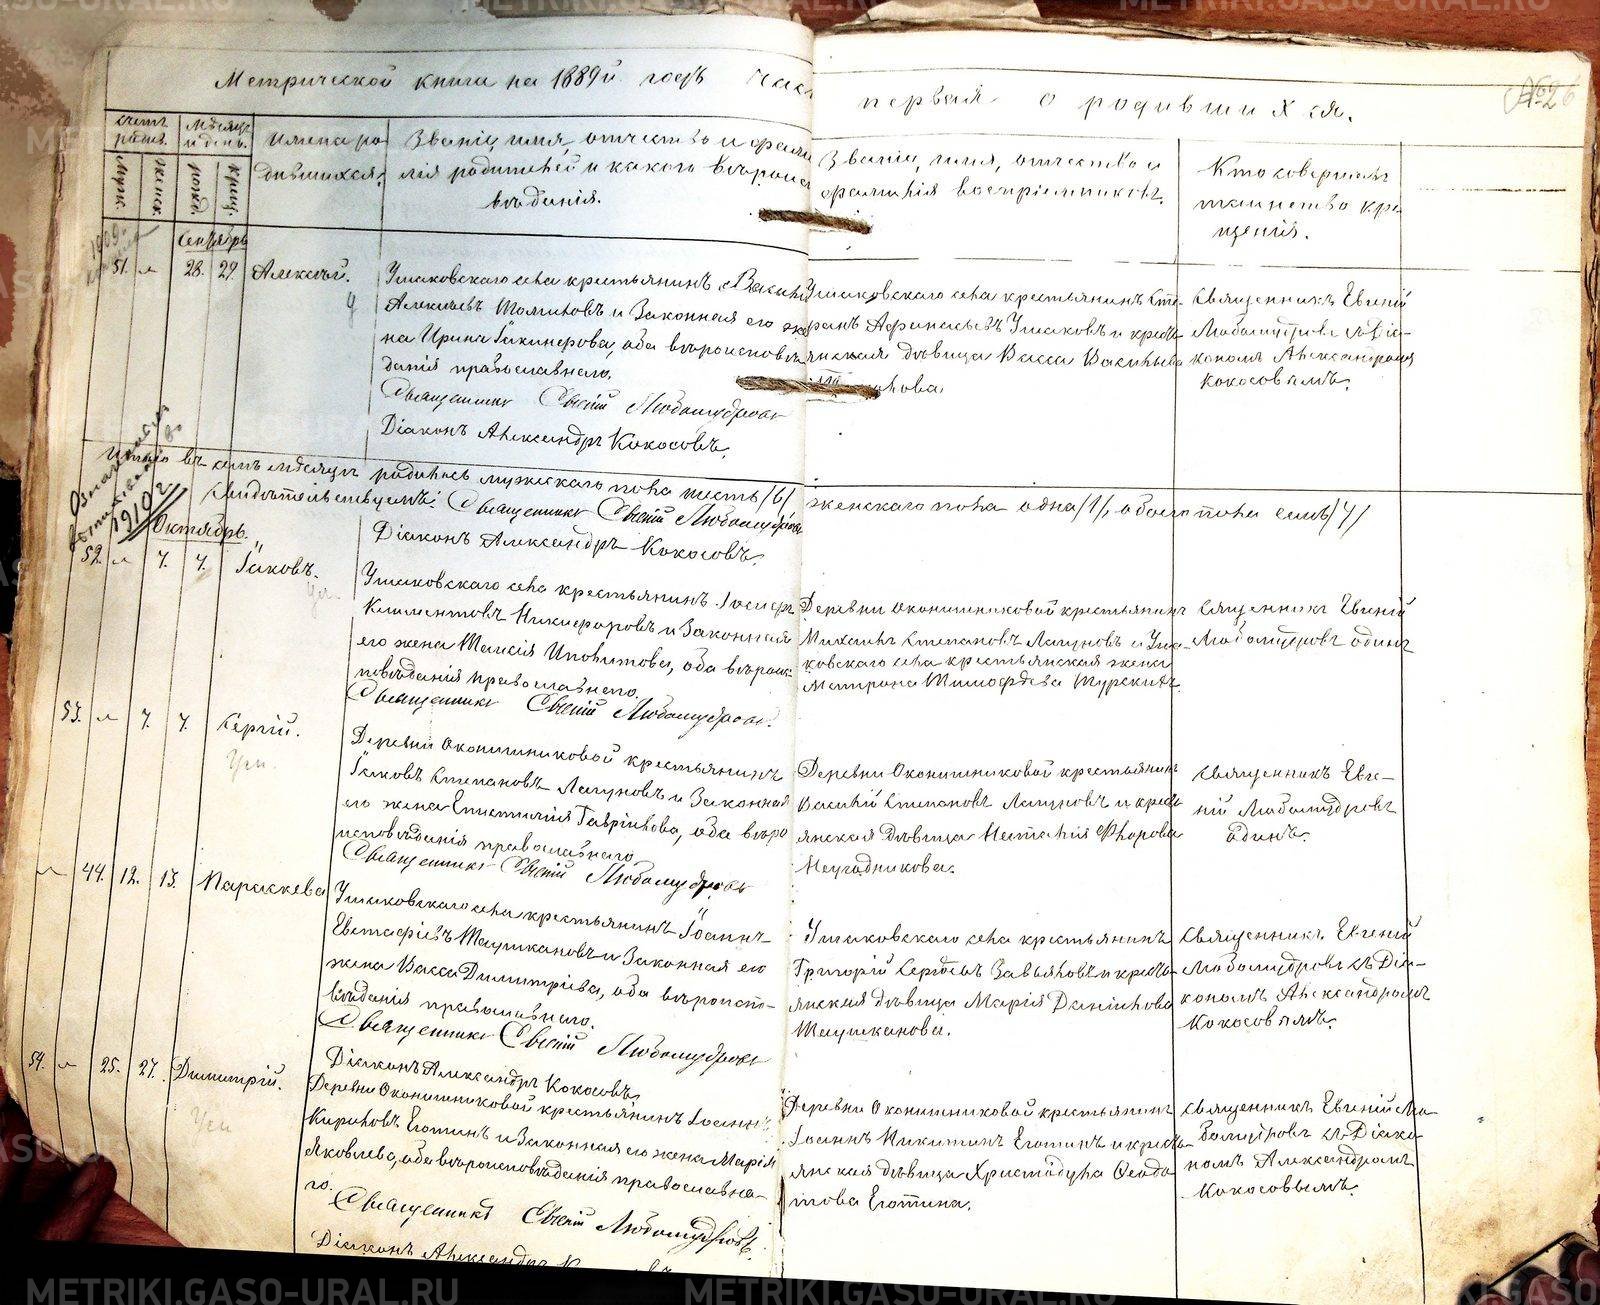 Метрической книги на 1889й годъ Час
первая о родившихся.
№26
счетъ родив.
Мѣсяцъ и день.
Мужс.
женск.
рожд.
крещ.
Имена ро
дившихся.
Званіе, имя, отчество и фами
лія родителей и какого вѣроис
вѣданія.
Званіе, имя, отчество и
фамилія воспріемниковъ.
Кто совершалъ
таинство кре
щенія.
Сентябрь
51. 28. 29. Алексѣй.
Ушаковскаго села крестьянинъ Васил
Алексѣевъ и Законная его же
на Ирина Іакинфова, оба вѣроисповѣ
данія православнаго.
Священникъ Евгеній Любомудровъ
Діаконъ Александръ Кокосовъ.
Ушаковскаго села крестьянинъ Сте-
фанъ Афанасьевъ Ушаковъ и кресть
янская дѣвица Васса Васильева
Священникъ Евгеній
Любомудровъ съ Діа-
кономъ Александромъ
Кокосовымъ.
Итого въ семъ мѣсяцѣ родилось мужескаго пола шесть /6/
женскаго пола одна /1/, обоего пола семь /7/
Свидѣтельствуемъ: Священникъ Евгеній Любомудровъ
Діаконъ Александръ Кокосовъ.
1910 г.
Октябрь.
52. 7. 7. Іаковъ.
Ушаковскаго села крестьянинъ Іосифъ
Климентовъ Никифоровъ и Законная
его жена Таисія Ипполитова, оба вѣроис-
повѣданія православнаго.
Священникъ Евгеній Любомудровъ.
Деревни Оконишниковой крестьянинъ
Михаилъ Степановъ Лагуновъ и Уша-
ковскаго села крестьянская жена
Матрона Тимофѣева Турскихъ.
Священникъ Евгеній
Любомудровъ одинъ
53. 7. 7. Сергій.
Деревни Оконишниковой крестьянинъ
Іаковъ Степановъ Лагуновъ и Законная
его жена Епистимія Гавріилова, оба вѣро
исповѣданія православнаго
Священникъ Евгеній Любомудровъ
Деревни Оконишниковой крестьянинъ
Василій Степановъ Лагуновъ и кресть
янская дѣвица Наталія Флорова
Неугодникова.
Священникъ Евге-
ній Любомудровъ
одинъ.
44. 12. 13. Параскева
Ушаковскаго села крестьянинъ Іоаннъ
Евстафіевъ Таушкановъ и Законная его
жена Васса Димитріева, оба вѣроиспо-
вѣданія православнаго.
Священникъ Евгеній Любомудровъ
Діаконъ Александръ Кокосовъ.
Ушаковскаго села крестьянинъ
Григорій Сергѣевъ Завьяловъ и кресть-
янская дѣвица Марія Даніилова
Таушканова.
Священникъ Евгеній
Любомудровъ съ Діа-
кономъ Александромъ
Кокосовымъ.
54. 25. 27. Димитрій.
Деревни Оконишниковой крестьянинъ Іоаннъ
Кириловъ Еготинъ и Законная его жена Марія
Яковлева, оба вѣроисповѣданія православна-
го.
Священникъ Евгеній Любомудровъ.
Діаконъ Александръ
Деревни Оконишниковой крестьянинъ
Іоаннъ Никитинъ Еготинъ и кресть-
янская дѣвица Христодула Ѳеодо
това Еготина.
Священникъ Евгеній Лю-
бомудровъ съ Діако-
номъ Александромъ
Кокосовымъ.
METRIKI.GASO-URAL.RU